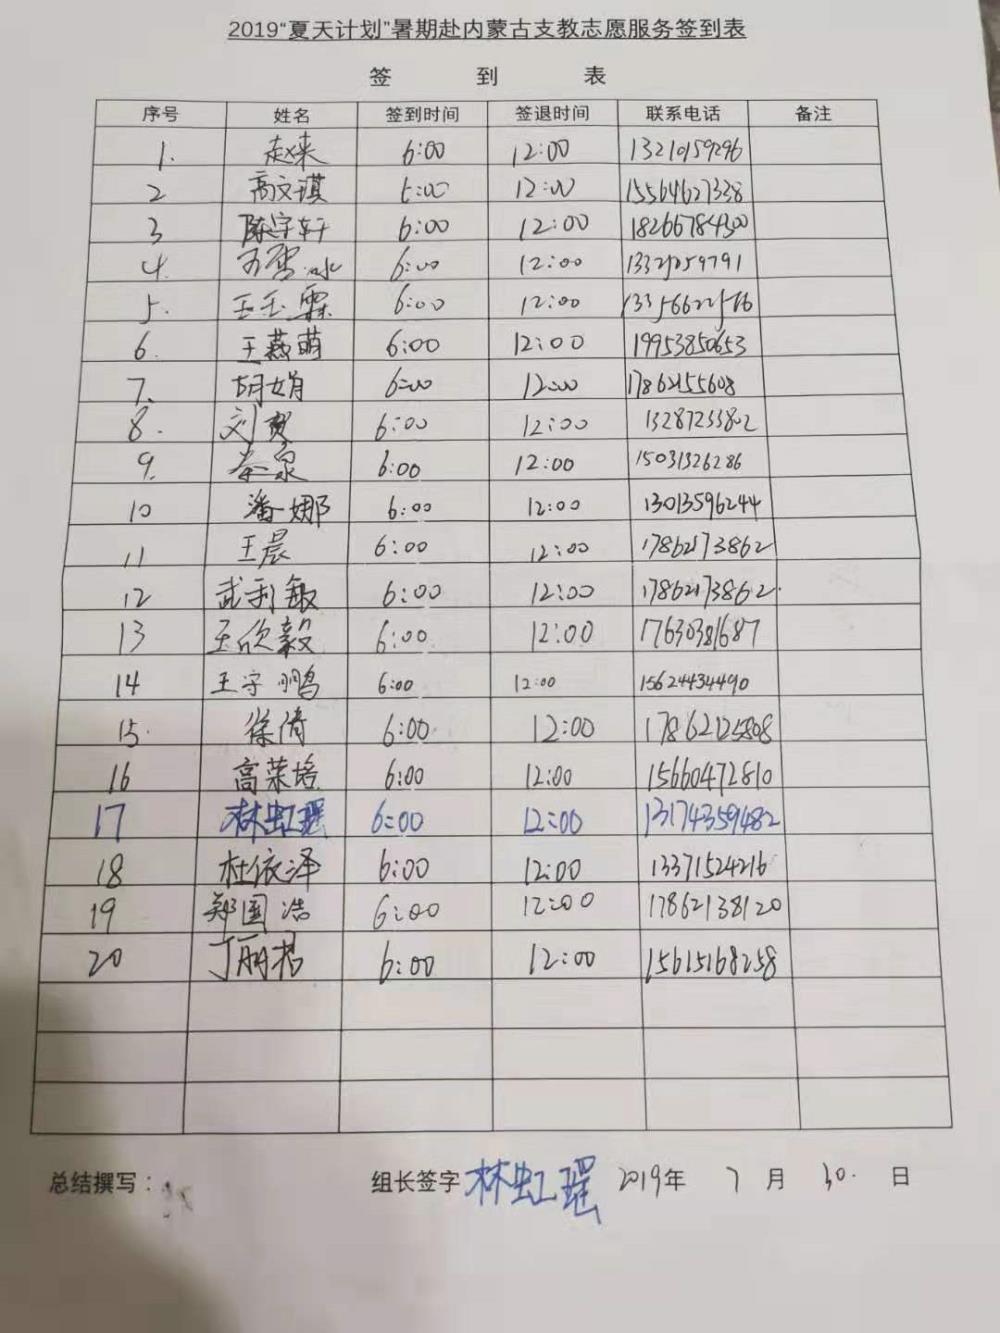 2019“夏天计划”暑期赴内蒙古支教志愿服务签到表
签 到 表
序号 姓名 签到时间 签退时间 联系电话 备注
1. 赵来 6:00 12:00 13210159296
2 高文琪 6:00 12:00 15564627338
3 陈宇轩 6:00 12:00 18266784300
4. 6:00 12:00
5. 王玉霖 6:00 12:00
6. 王燕萌 6:00 12:00 19953850653
7. 胡娟 6:00 12:00 17862155608
8. 刘贺 6:00 12:00 13287233802
9. 秦泉 6:00 12:00 15031326286
10 潘娜 6:00 12:00 13013596244
11 王晨 6:00 12:00 17862173862
12 武利敏 6:00 12:00 17862173862.
13 王欣毅 6:00 12:00 17630381687
14 王宇鹏 6:00 12:00 15624434490
15. 徐倩 6:00 12:00 17862125808
16 高荣培 6:00 12:00 15660472810
17 林虹瑶 6:00 12:00 13174359482
18 杜依泽 6:00 12:00 13371524216
19 郑国浩 6:00 12:00 17862138120
20 丁丽君 6:00 12:00 15615168258
总结撰写： 组长签字 林虹瑶 2019年 7 月 30. 日